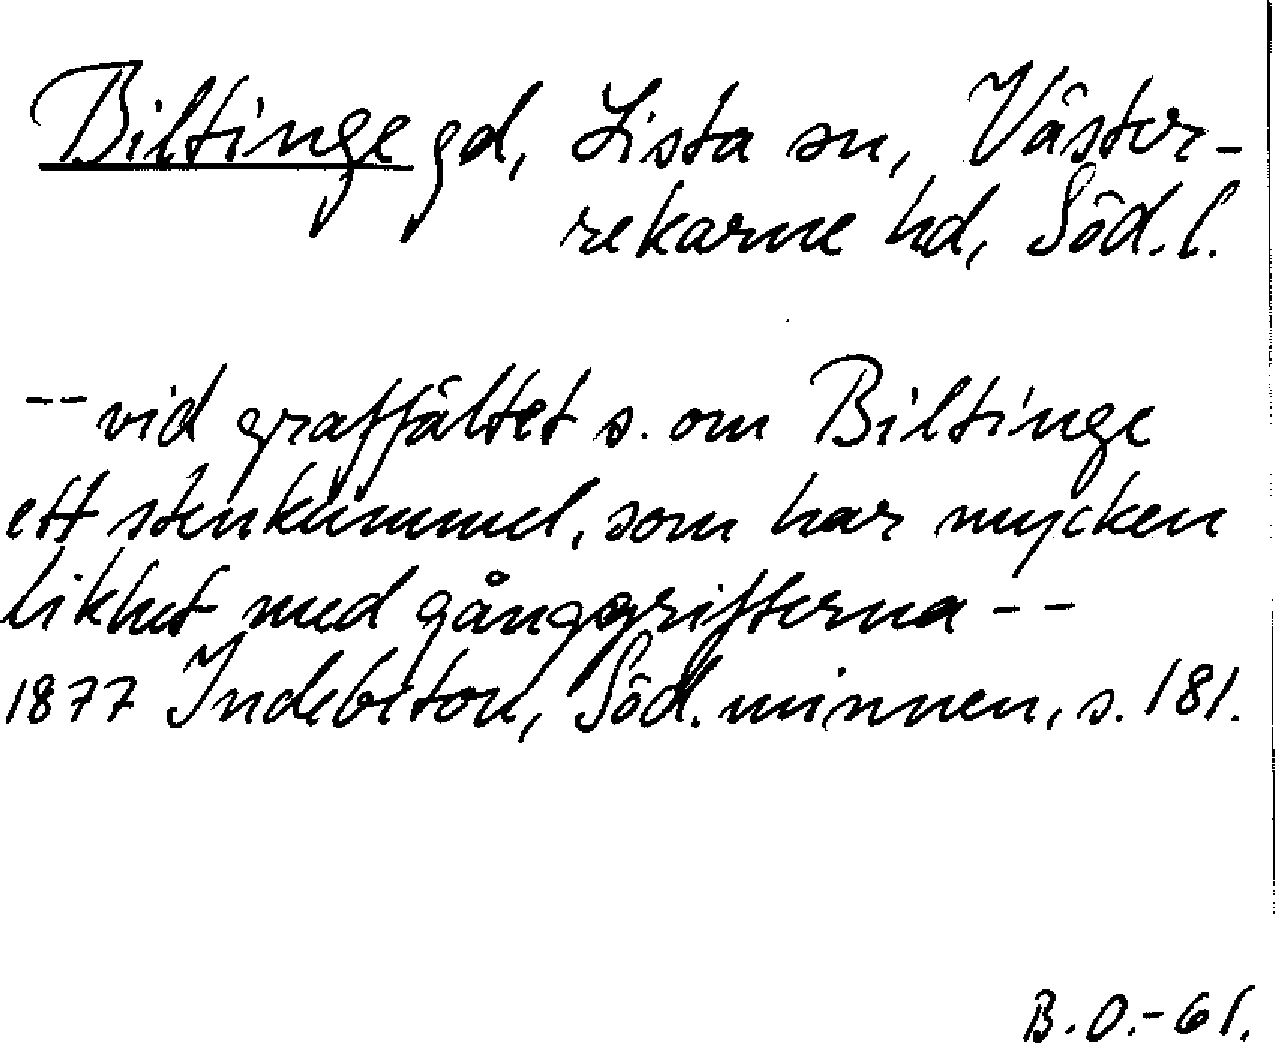 Biltinge gd, Lista sn, Väster-
rekarne hd, Söd.l.
-- vid graffältet s. om Biltinge
ett stenkummel, som har mycken
likhet med gånggrifterna --
1877 Indebetou, Söd. minnen, s. 181.
B.O.-61.